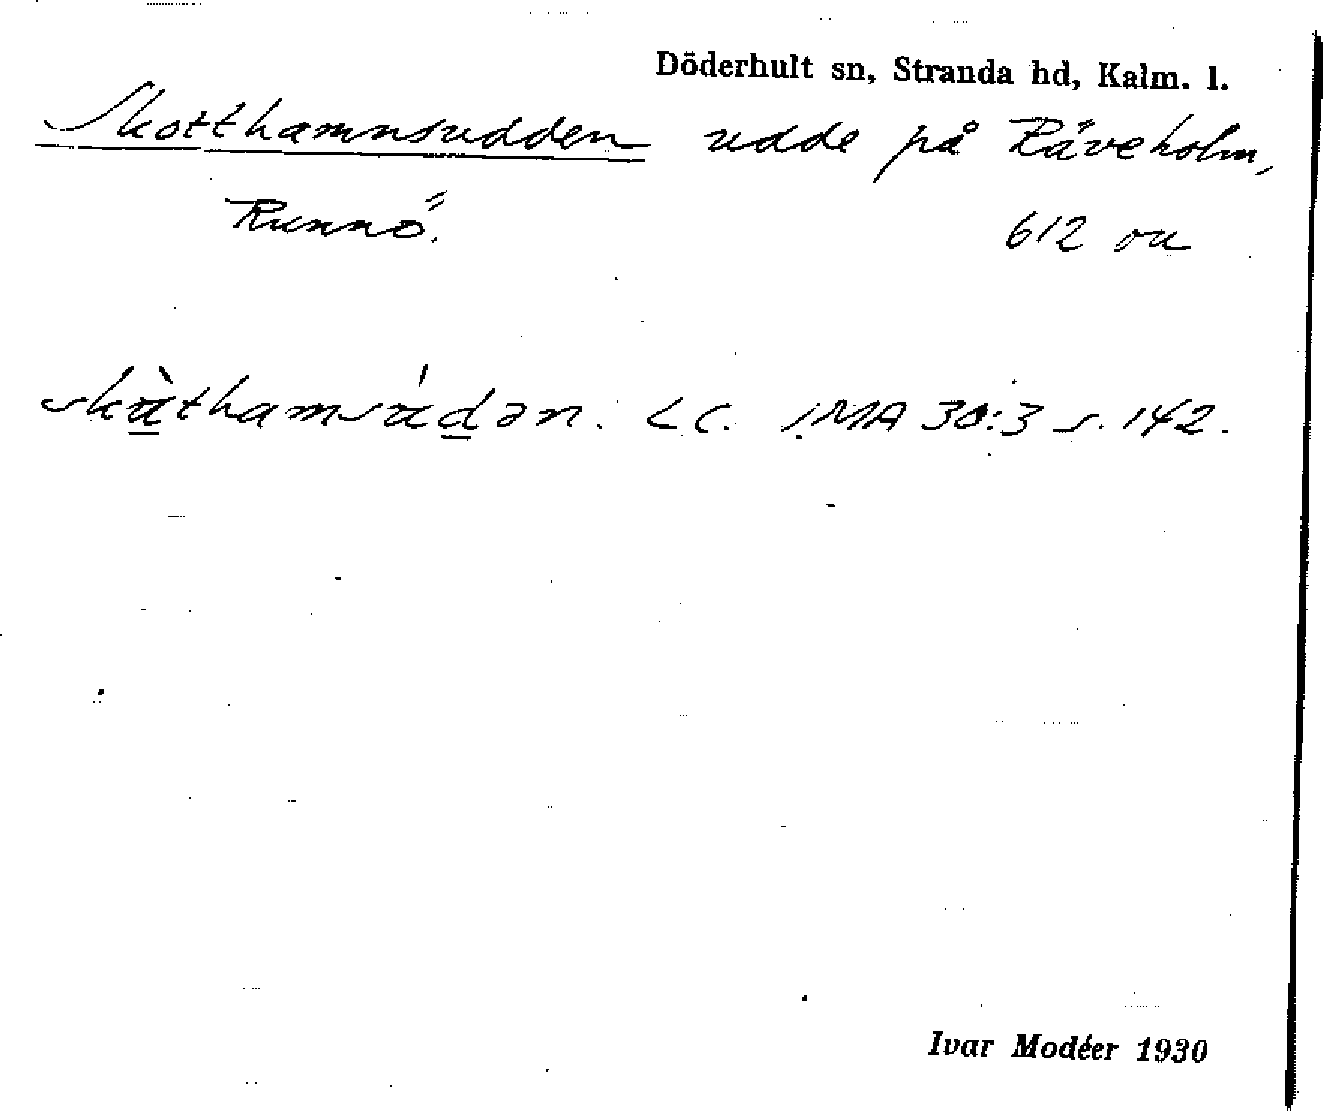 Döderhult sn, Stranda hd, Kalm. l.
Skotthamnsudden udde på Räveholm,
Runnö. 612 ou
skàthamsúdən. LC. IMA 30:3 s. 142.
Ivar Modéer 1930